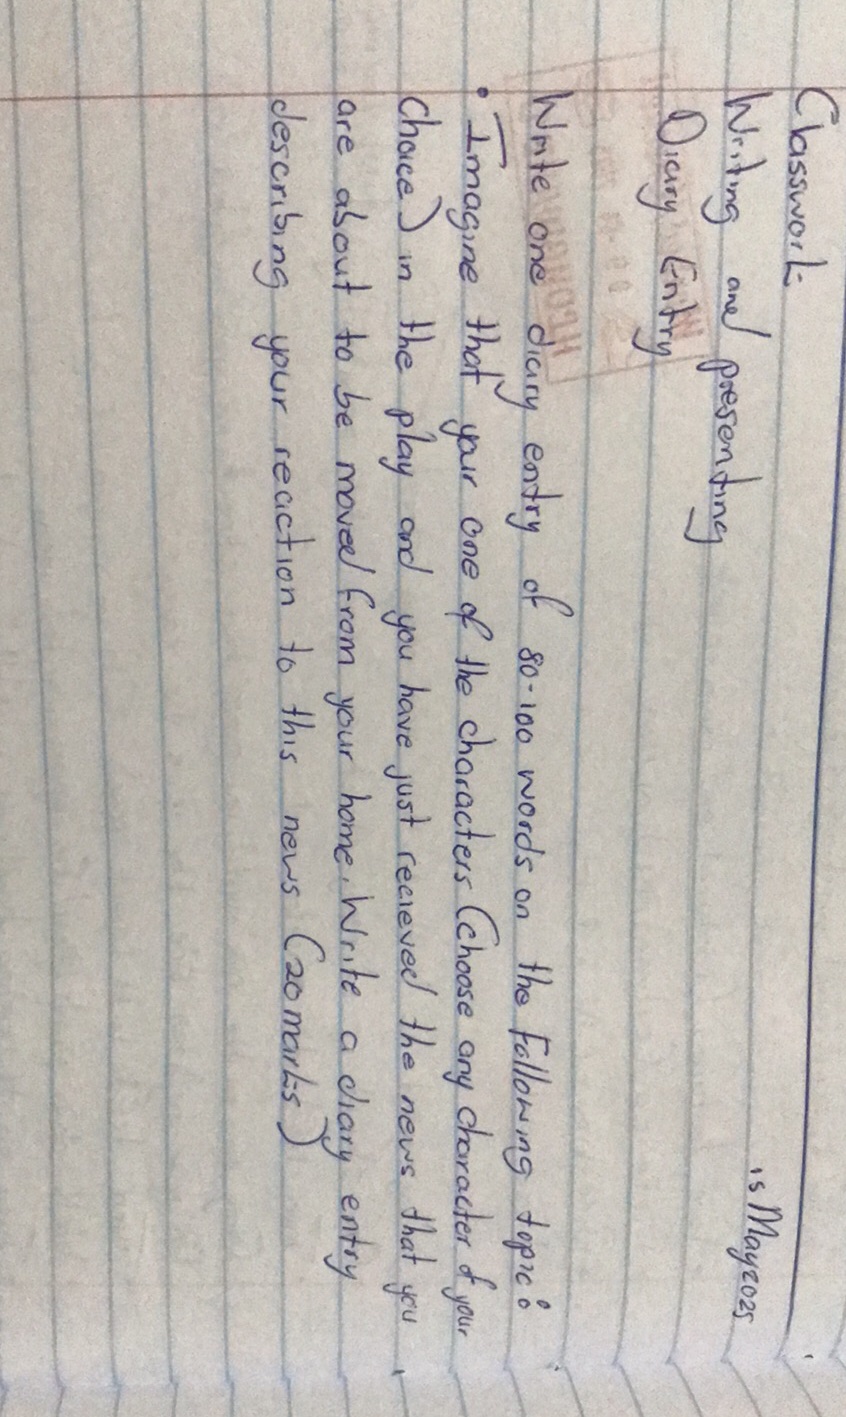 Classwork
15 May 2025
Writing and presenting
Diary Entry
Write one diary entry of 80-100 words on the following topic:
• Imagine that your one of the characters (choose any character of your
choice) in the play and you have just recieved the news that you
are about to be moved from your home. Write a diary entry
describing your reaction to this news (20 marks)